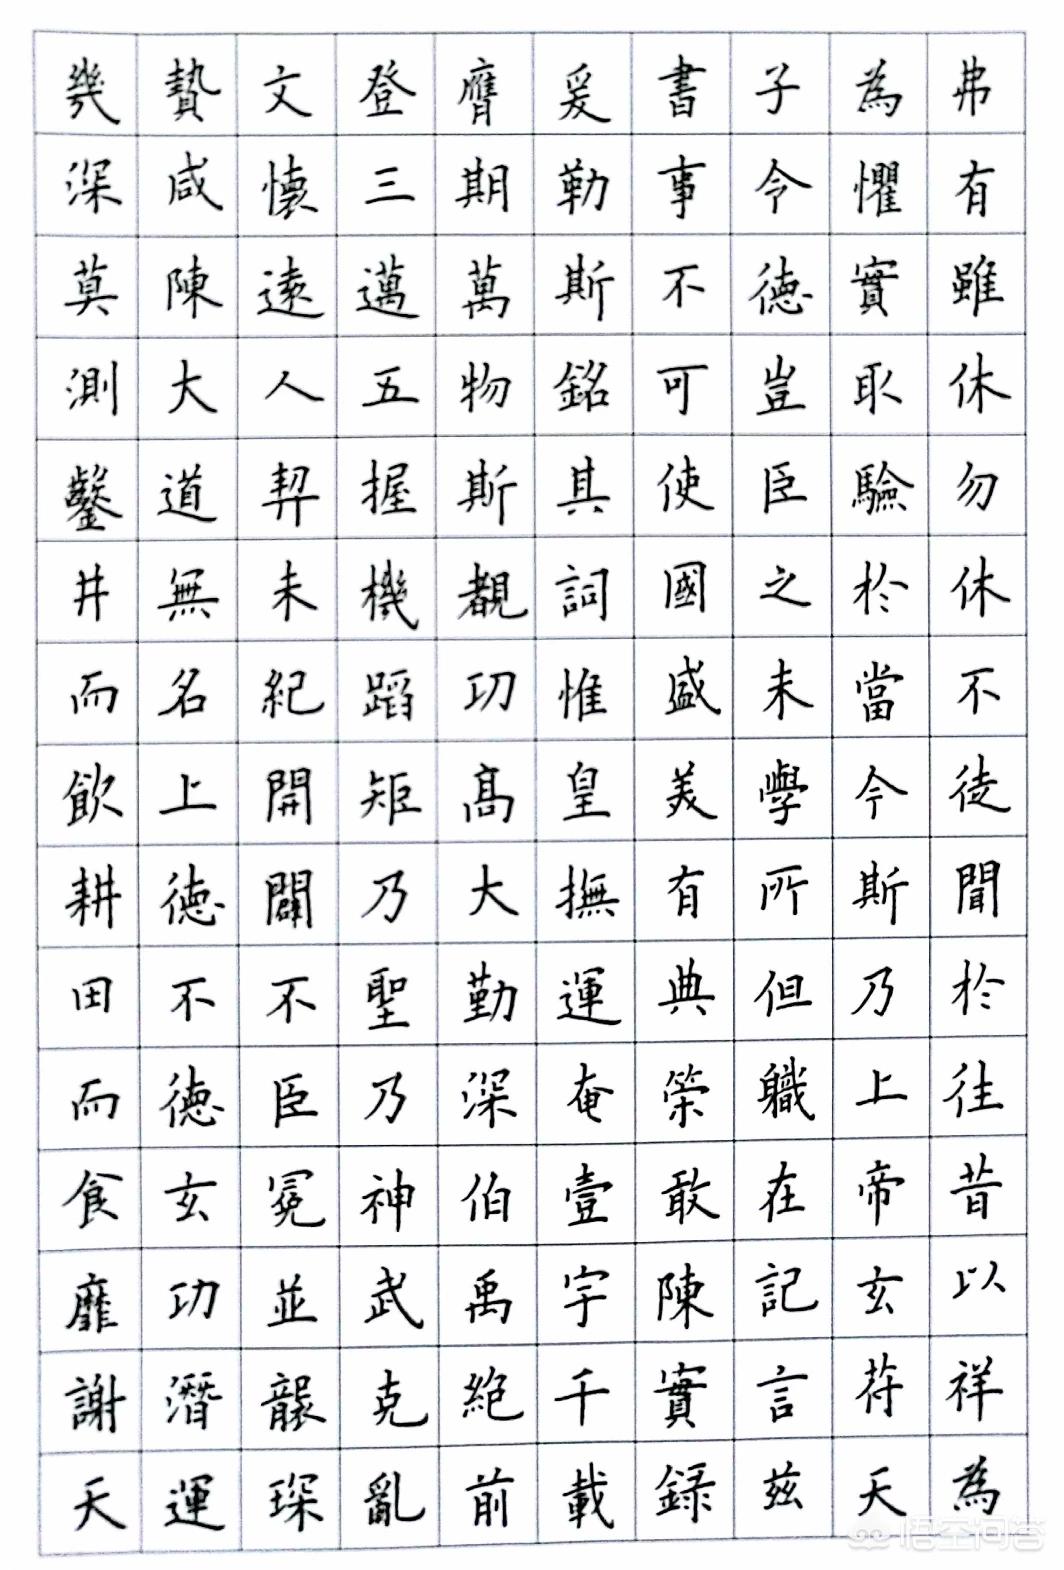 弗有雖休勿休不徒聞於往昔以祥為
為懼實取驗於當今斯乃上帝玄符天
子令德豈臣之未學所但職在記言茲
書事不可使國盛美有典策敢陳實録
爰勒斯銘其詞惟皇撫運奄壹宇千載
膺期萬物斯覩功髙大勤深伯禹絕前
登三邁五握機蹈矩乃聖乃神武克亂
文懷遠人契未紀開闢不臣冕並襲琛
贄咸陳大道無名上德不德玄功潛運
幾深莫測鑿井而飲耕田而食靡謝天
悟空问答